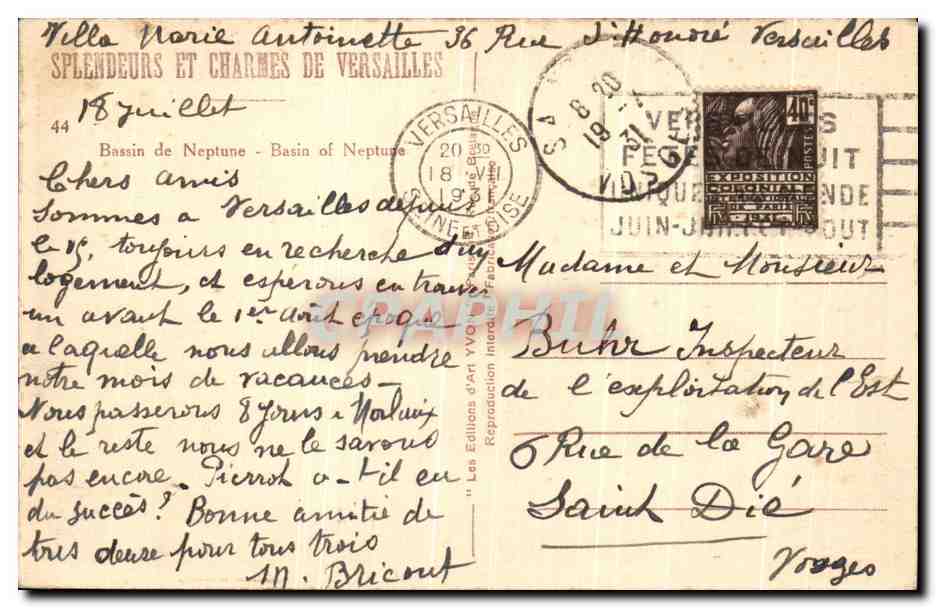 Villa Marie Antoinette 36 Rue St Honoré Versailles
SPLENDEURS ET CHARMES DE VERSAILLES
18 Juillet
44
Bassin de Neptune - Basin of Neptune
Chers amis
Sommes à Versailles depuis
le 15, toujours en recherche d'un
logement, et espérons en trouver
un avant le 1er Août époque
a laquelle nous allons prendre
notre mois de vacances -
Nous passerons 8 jours a Morlaix
et le reste nous ne le savons
pas encore. Pierrot a-t-il eu
du succès? Bonne amitié de
tres deuse pour tous trois
M. Bricout
VERSAILLES
20 30
18 VII
1931
SEINE ET OISE
"Les Editions d'Art YVON"
Reproduction Interdite Fabriqué
8 20
19 -7
31
VOSGES
VERSAILLES
FETES DE NUIT
JUIN-JUILLET-AOUT
40c
POSTES
EXPOSITION
COLONIALE
INTERNATIONALE
DE PARIS
1931
CPAPHIL
Madame et Monsieur
Buhr Inspecteur
de l'exploitation de l'Est
6 Rue de la Gare
Saint Dié
Vosges